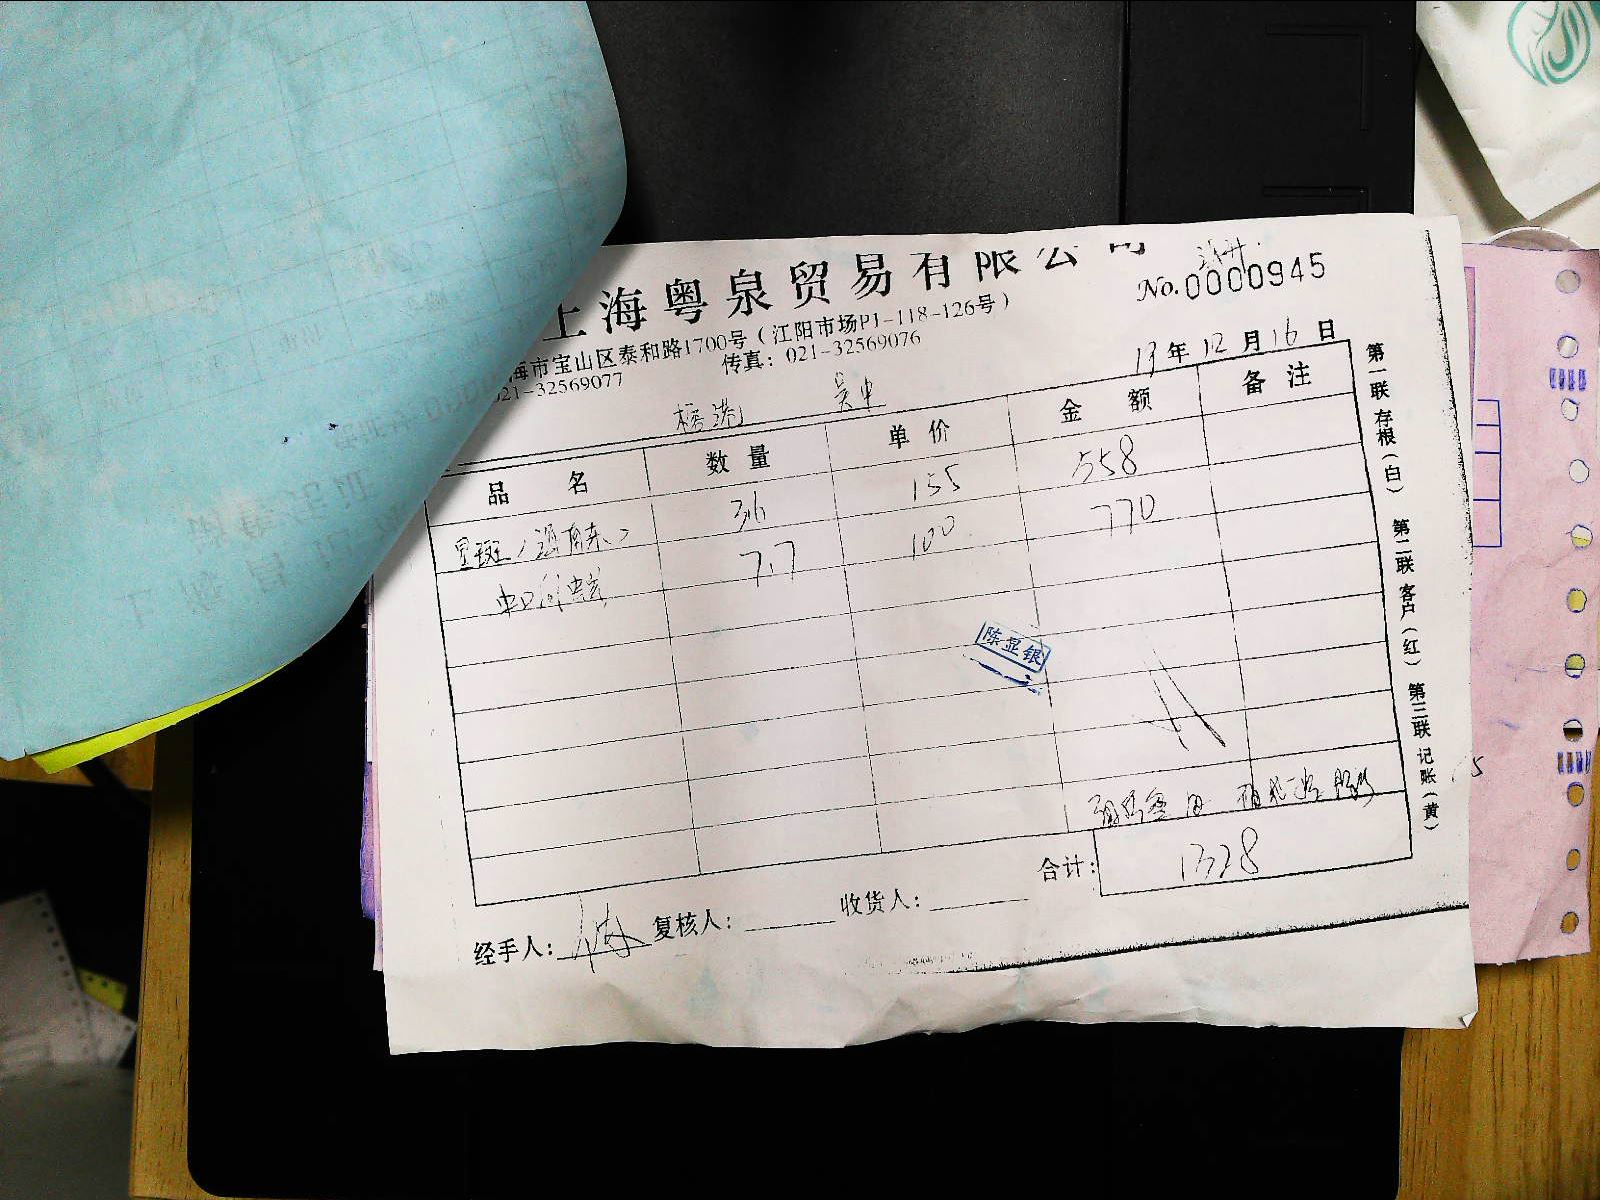 上海粤泉贸易有限公司
No.0000945
海市宝山区泰和路1700号（江阳市场P1-118-126号）
021-32569077 传真：021-32569076
13年12月16日
品名 数量 单价 金额 备注
星斑（海南来） 3.6 155 558
7.7 100 770
陈显银
合计：1328
经手人： 复核人： 收货人：
第一联 存根（白） 第二联 客户（红） 第三联 记账（黄）